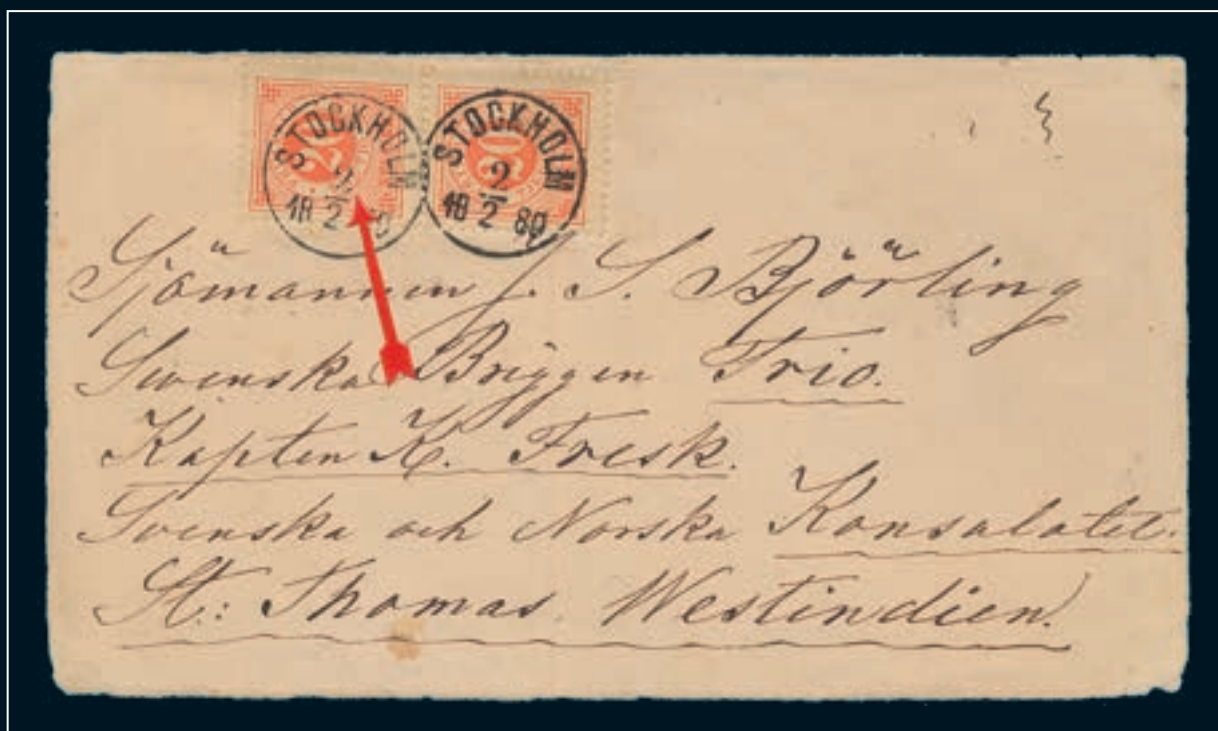 20 20
STOCKHOLM STOCKHOLM
2 2
18 2 80 18 2 80
Sjömannen J. S. Björling
Svenska Briggen Trio.
Kapten K. Fresk.
Svenska och Norska Konsulatet.
St: Thomas. Westindien.